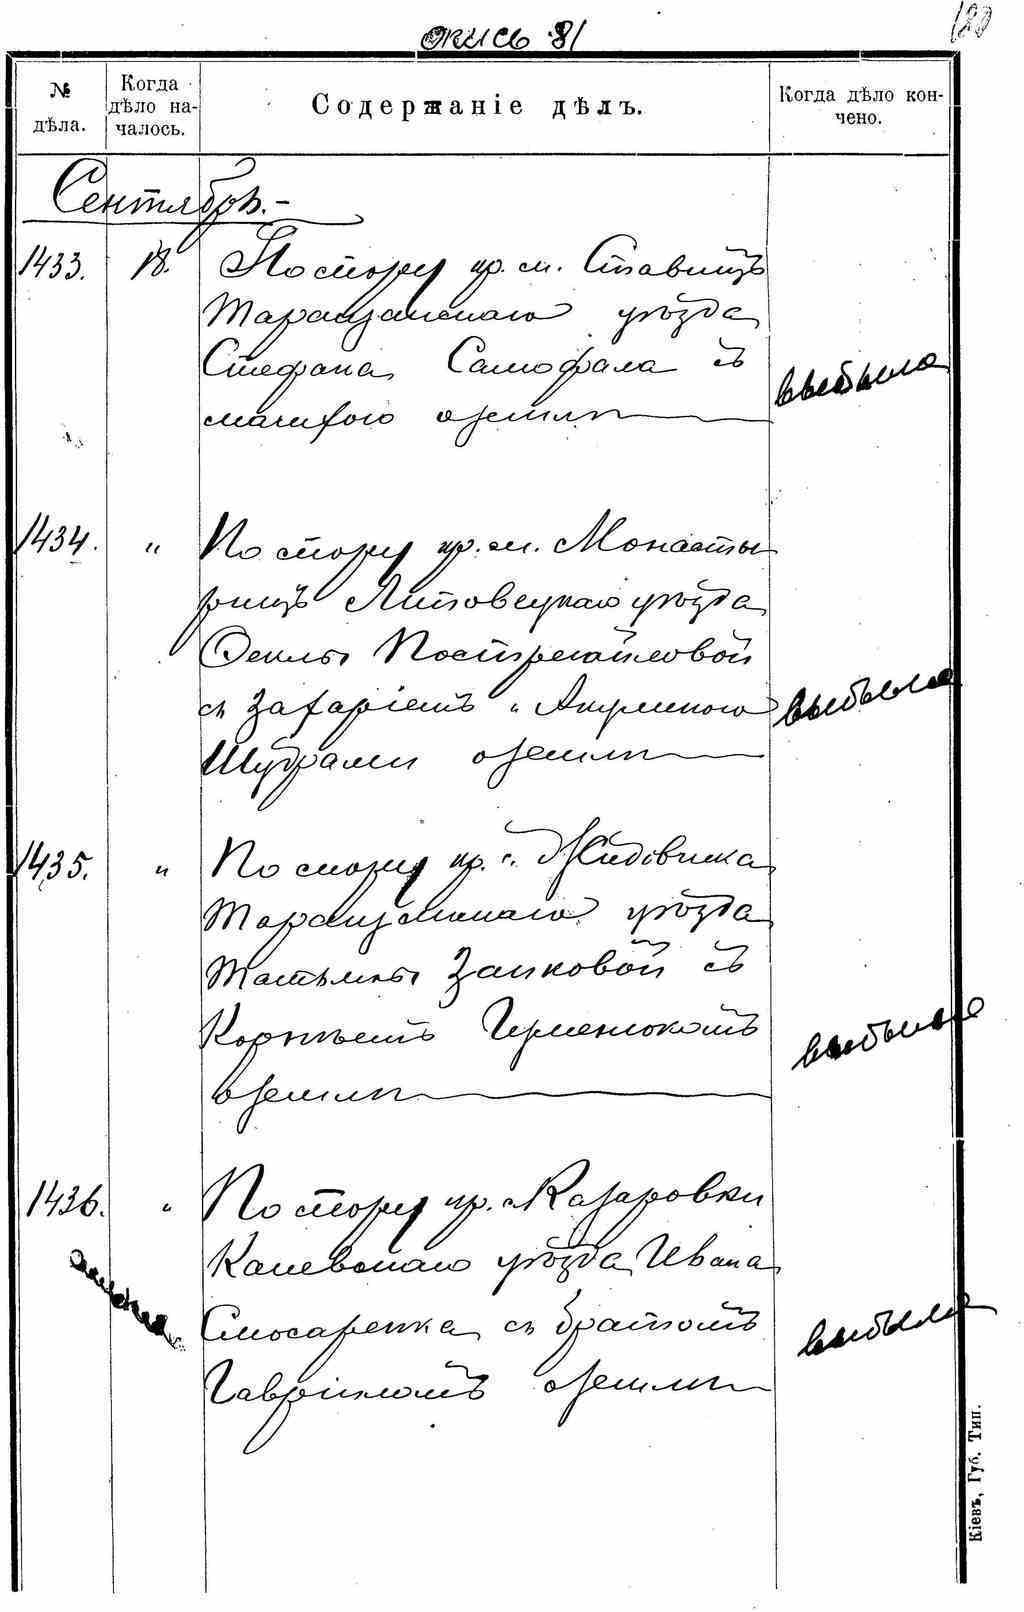 опись 81
№
дѣла.
Когда
дѣло на-
чалось.
Содержаніе дѣлъ.
Когда дѣло кон-
чено.
Сентябрь.-
1433. 18. По спору кр. м. Ставищъ
Таращанскаго уѣзда
Стефана Самофала съ
мачихою о землѣ
выбыло
1434. " По спору кр. м. Монасты
рищъ Липовецкаго уѣзда
Феклы
съ Захаріемъ и
Шуграми о землѣ
выбыло
1435. " По спору кр. с. Жидовчика
Таращанскаго уѣзда
Татьяны Заиковой съ
Корнѣемъ
о землѣ
выбыло
1436. " По спору кр. с. Казаровки
Каневскаго уѣзда Ивана
Слюсаренка съ братомъ
Гавріиломъ о землѣ
выбыло
Кіевъ, Губ. Тип.